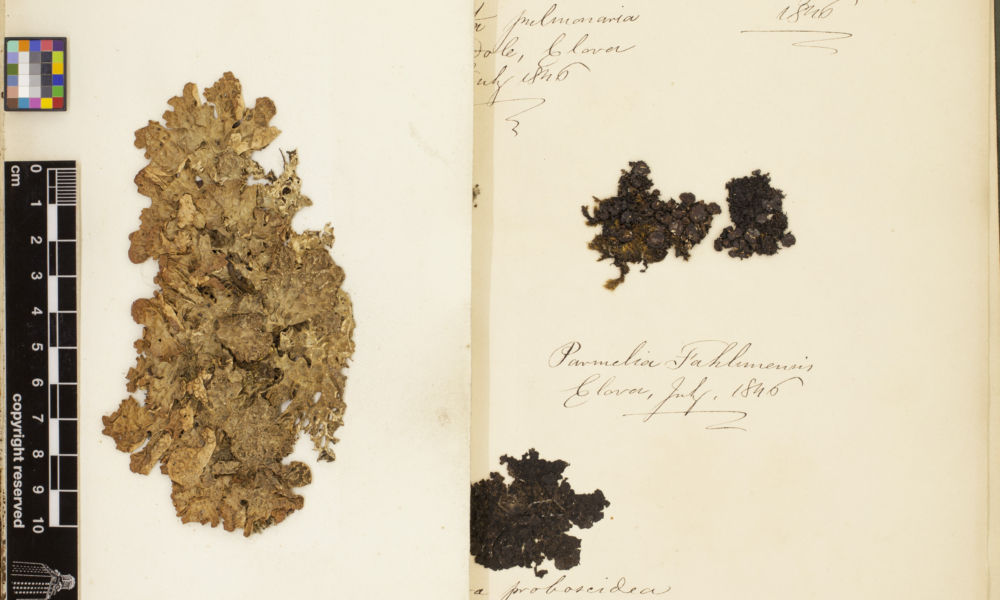 pulmonaria
1846
Clova
July 1846
Parmelia Fahlunensis
Clova, July, 1846
proboscidea
0 1 2 3 4 5 6 7 8 9 10
cm
copyright reserved